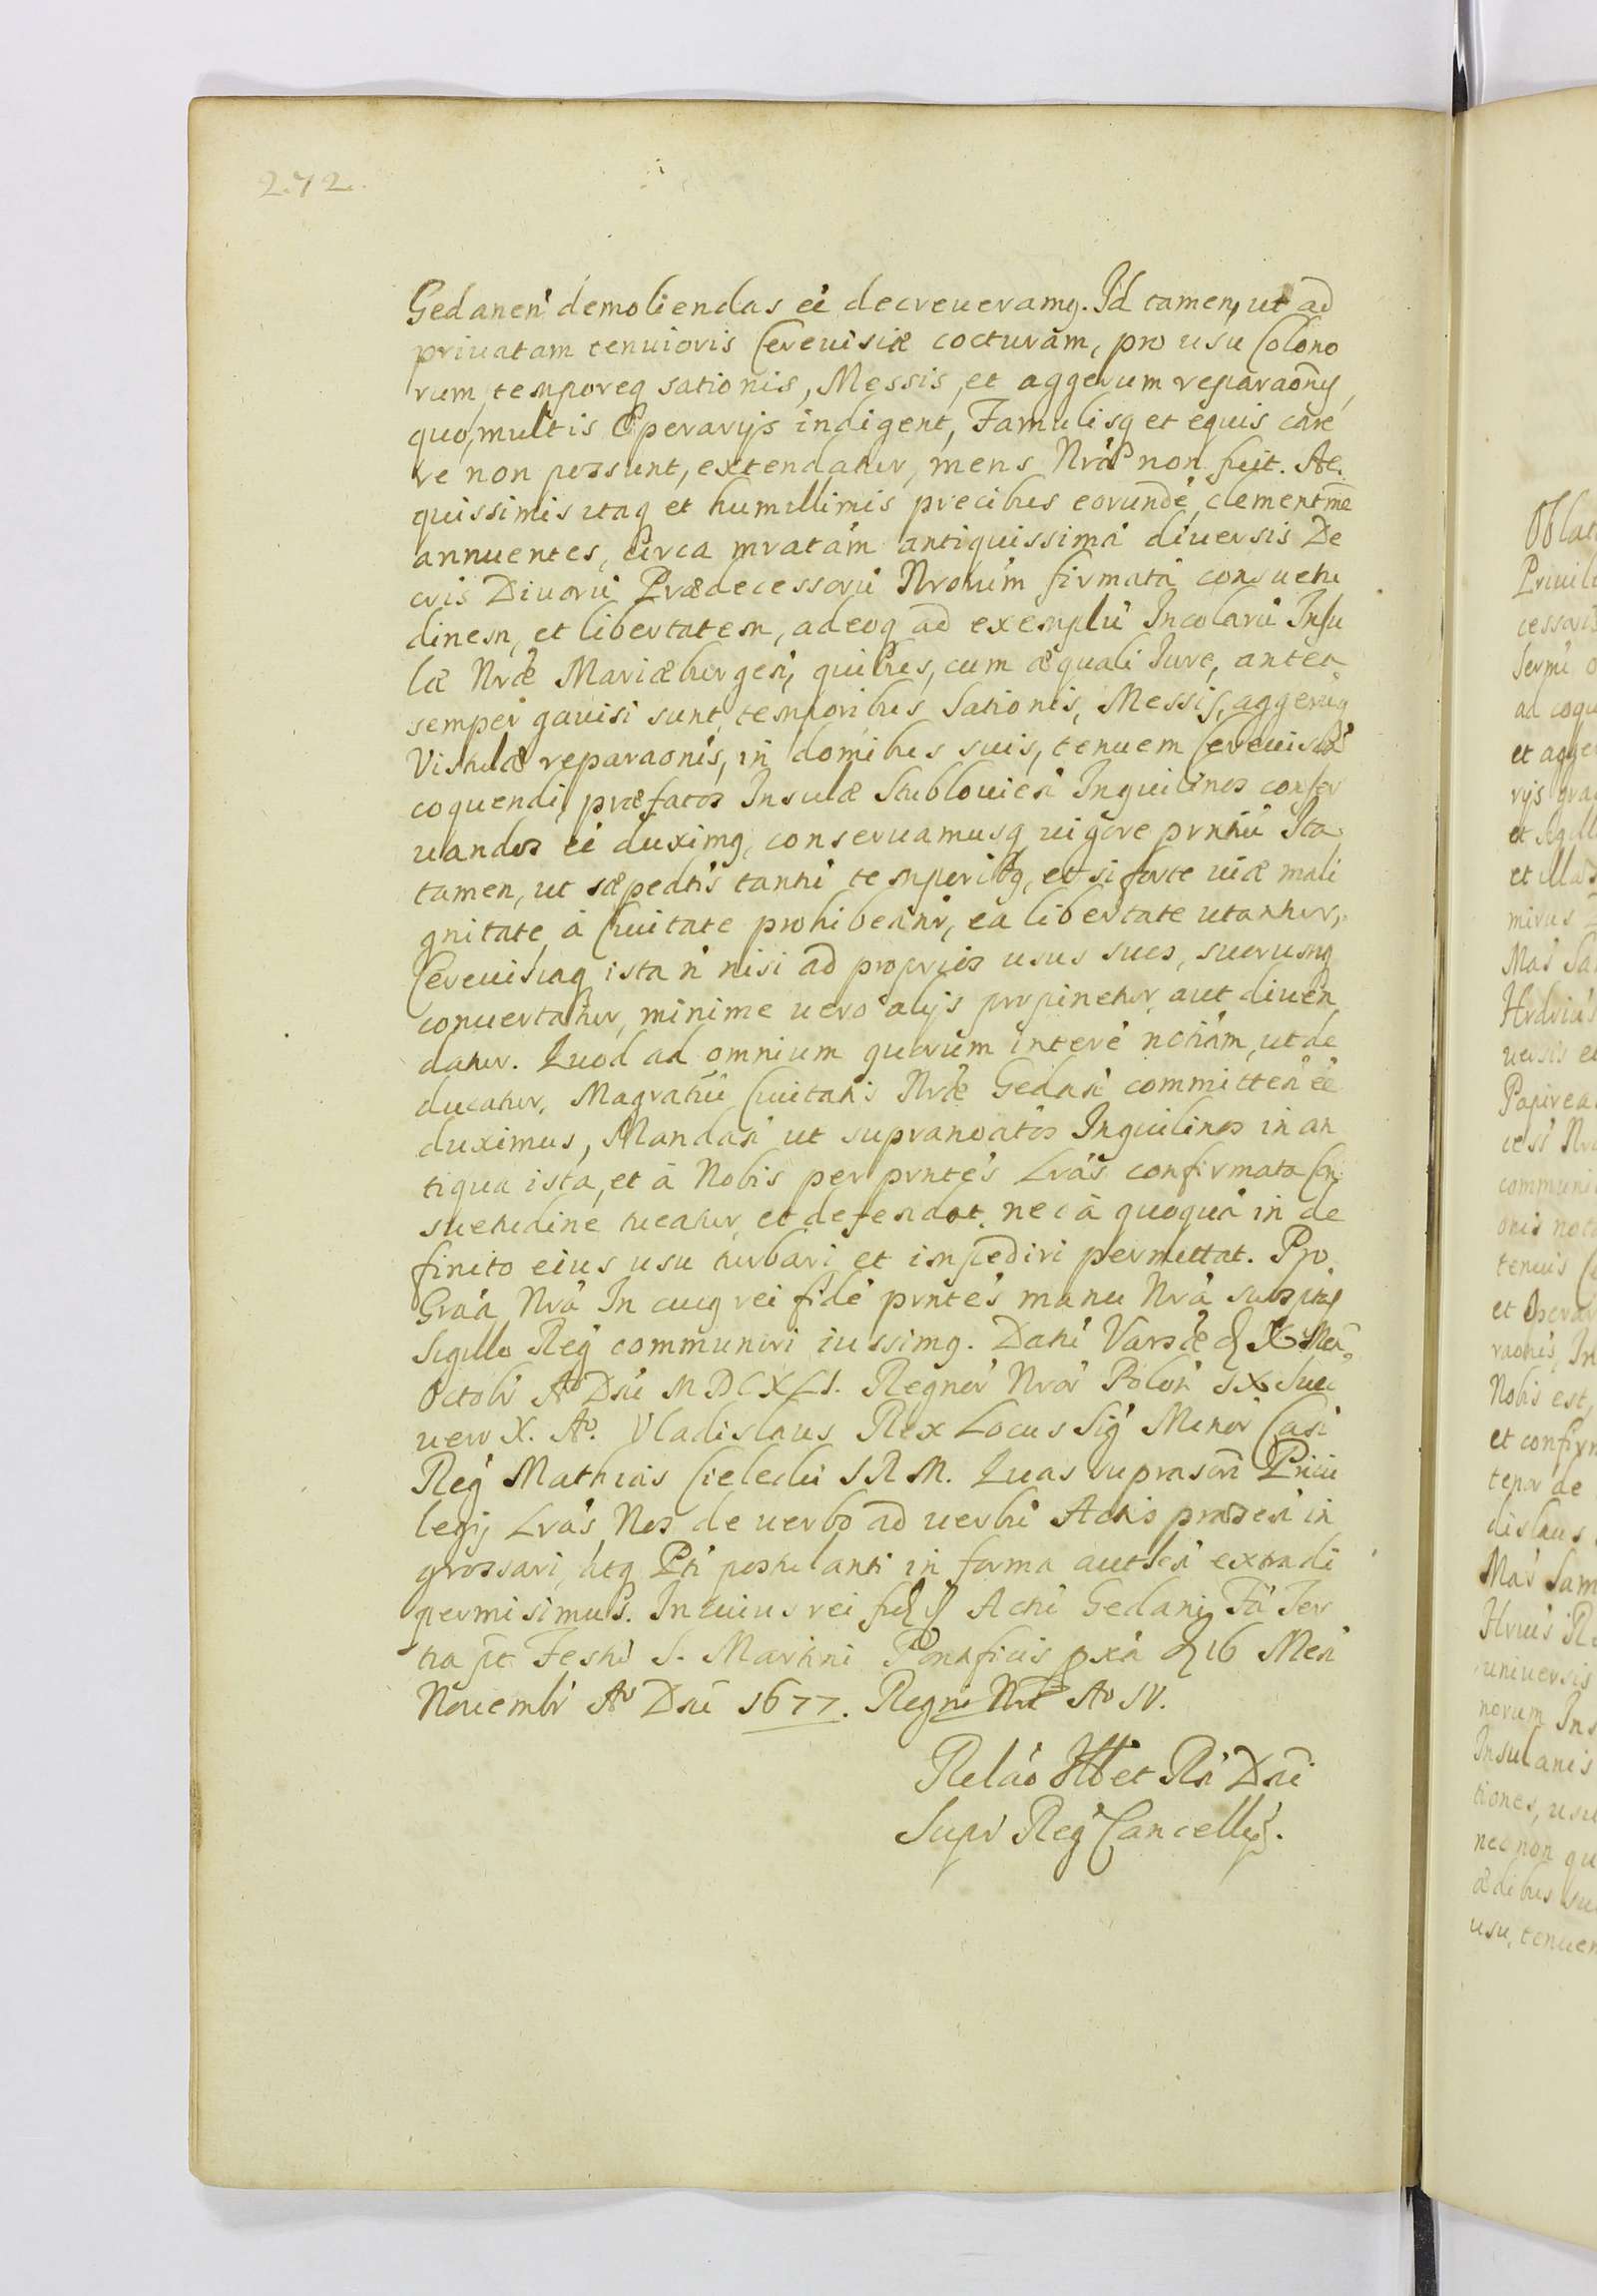 272.
Gedanen̄ demoliendas eē decreueramꝗ. Id tamen, ut ad
priuatam tenuioris Cereuisiæ cocturam, pro usu Colono
rum, temporeꝗ sationis, Messis, et aggerum reparaōnis,
quo, multis Operarijs indigent, Famulisꝗ et equis care
re non possunt, extendatur, mens Nrā non fuit. Ae
quissimis itaꝗ et humillimis precibus eorundē, clementme
annuentes, circa mratam antiquissimā diuersis De
cris Diuorū Prædecessorū Nrorum firmatā consuetu
dinem, et libertatem, adeoꝗ ad exemplū Incolarū Insu
læ Nræ Mariæburgen̄, quibus, cum æquali Iure, antea
semper gauisi sunt, temporibus Sationis, Messis, aggerūꝗ
Vistulæ reparaonis, in domibus suis, tenuem Cereuisiā
coquendi, præfatos Insulæ Stublouien̄ Inquilinos conser
uandos eē duximꝗ, conseruamusꝗ uigore prntiū Ita
tamen, ut sæpedtis tantū temporibꝗ, et si forte uiæ mali
gnitate à Ciuitate prohibeantr, ea libertate utantur,
Cereuisiaꝗ ista n̄ nisi ad proprios usus suos, suorumꝗ
conuertatur, minime uero alijs propinetur aut diuen
datur. Quod ad omnium quorum interē notiam, ut de
ducatur, Magratui Ciuitatis Nræ Gedan̄ committen̄ eē
duximus, Mandan̄ ut supranoatos Inquilinos in an
tiqua ista, et à Nobis per prntes Lrās confirmata Con
suetudine tueatur, et defendat, nec à quoquā in de
finito eius usu turbari et impediri permittat. Pro
Graā Nrā In cuiꝗ rei fidē prntes manu Nrā
Sigillo Reḡ communiri iussimꝗ. Datū Varsæ X Men̄
Octobr Aō Dni MDCXLI. Regnor Nror Polon̄ IX Suec
uero X. Aō. Vladislaus Rex Locus Sig Minor Can̄
Reḡ Mathias Cieleckū SRM. Quas suprascri Priui
legij Lrās Nos de uerbo ad uerbū Actis præsen̄ in
grossari, utꝗ Pti postulanti in forma autten̄ extradi
permisimus. In cuius rei Actū Gedani Fā Ter
tia pt Festū S. Martini Pontificis pxa 16 Men̄
Nouembr Aō Dni 1677. Regni Nri Aō IV.
Relaō et Rn̄ Dni
Supr Reḡ Cancellrij.
Oblat
Priuile
cessoris
ad coqu
et agge
rijs gra
et Sigill
et illas
mirus
Maī Sa
uersis et
Papirea
cess Nro
communi
onis not
tenuis Ce
et Operar
raonis, In
Nobis est,
et confirm
tenor de
dislaus
Mas Sam
universis
norum Ins
Insulanis
tiones, usu
nec non qu
ædibus su
usu, tenuem